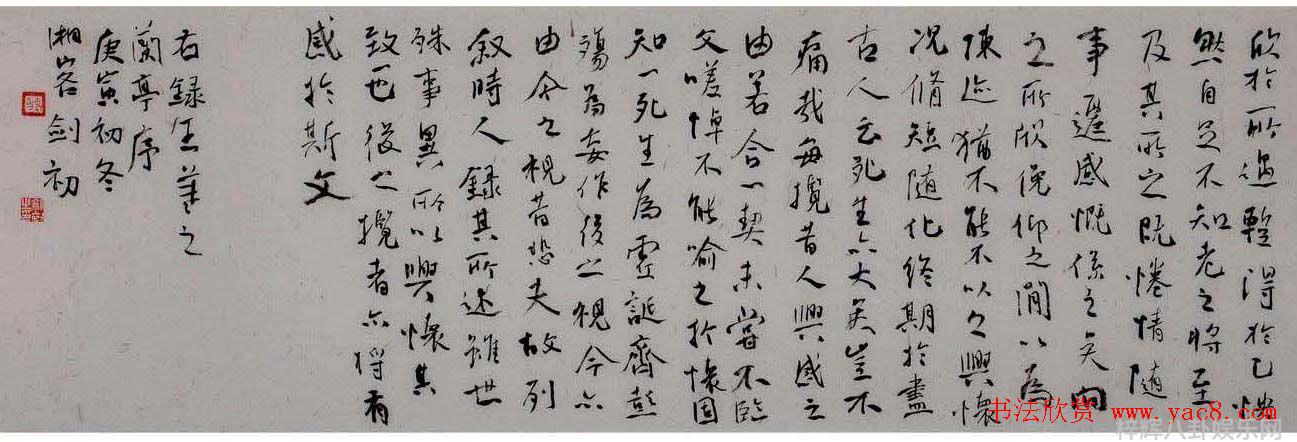 欣於所遇暫得於己快
然自足不知老之將至
及其所之既惓情隨
事遷感慨係之矣向
之所欣俛仰之閒以為
陳迹猶不能不以之興懷
況脩短隨化終期於盡
古人云死生亦大矣豈不
痛哉每攬昔人興感之
由若合一契未嘗不臨
文嗟悼不能喻之於懷固
知一死生為虛誕齊彭
殤為妄作後之視今亦
由今之視昔悲夫故列
敘時人錄其所述雖世
殊事異所以興懷其
致一也後之攬者亦將有
感於斯文
右錄王羲之
蘭亭序
庚寅初冬
湘客剑初
书法欣赏 www.yac8.com
梓辉八卦娱乐网